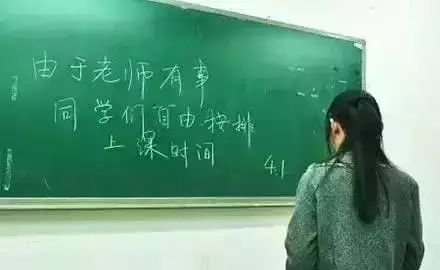 由于老师有事
同学们自由按排
上课时间
4.1